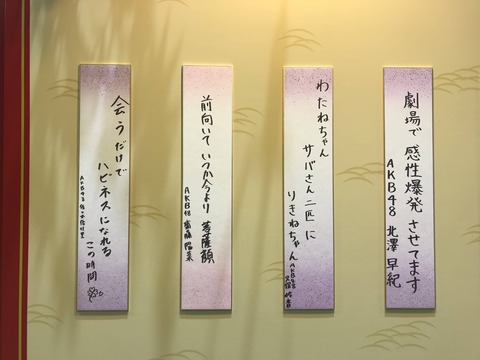 劇場で 感性爆発 させてます
AKB48 北澤 早紀
わたねちゃん
サバさん二匹に
りきねちゃん
前向いて いつか今より 菩薩顔
AKB48 齋藤 陽菜
会うだけで
ハピネスになれる
この時間
AKB48